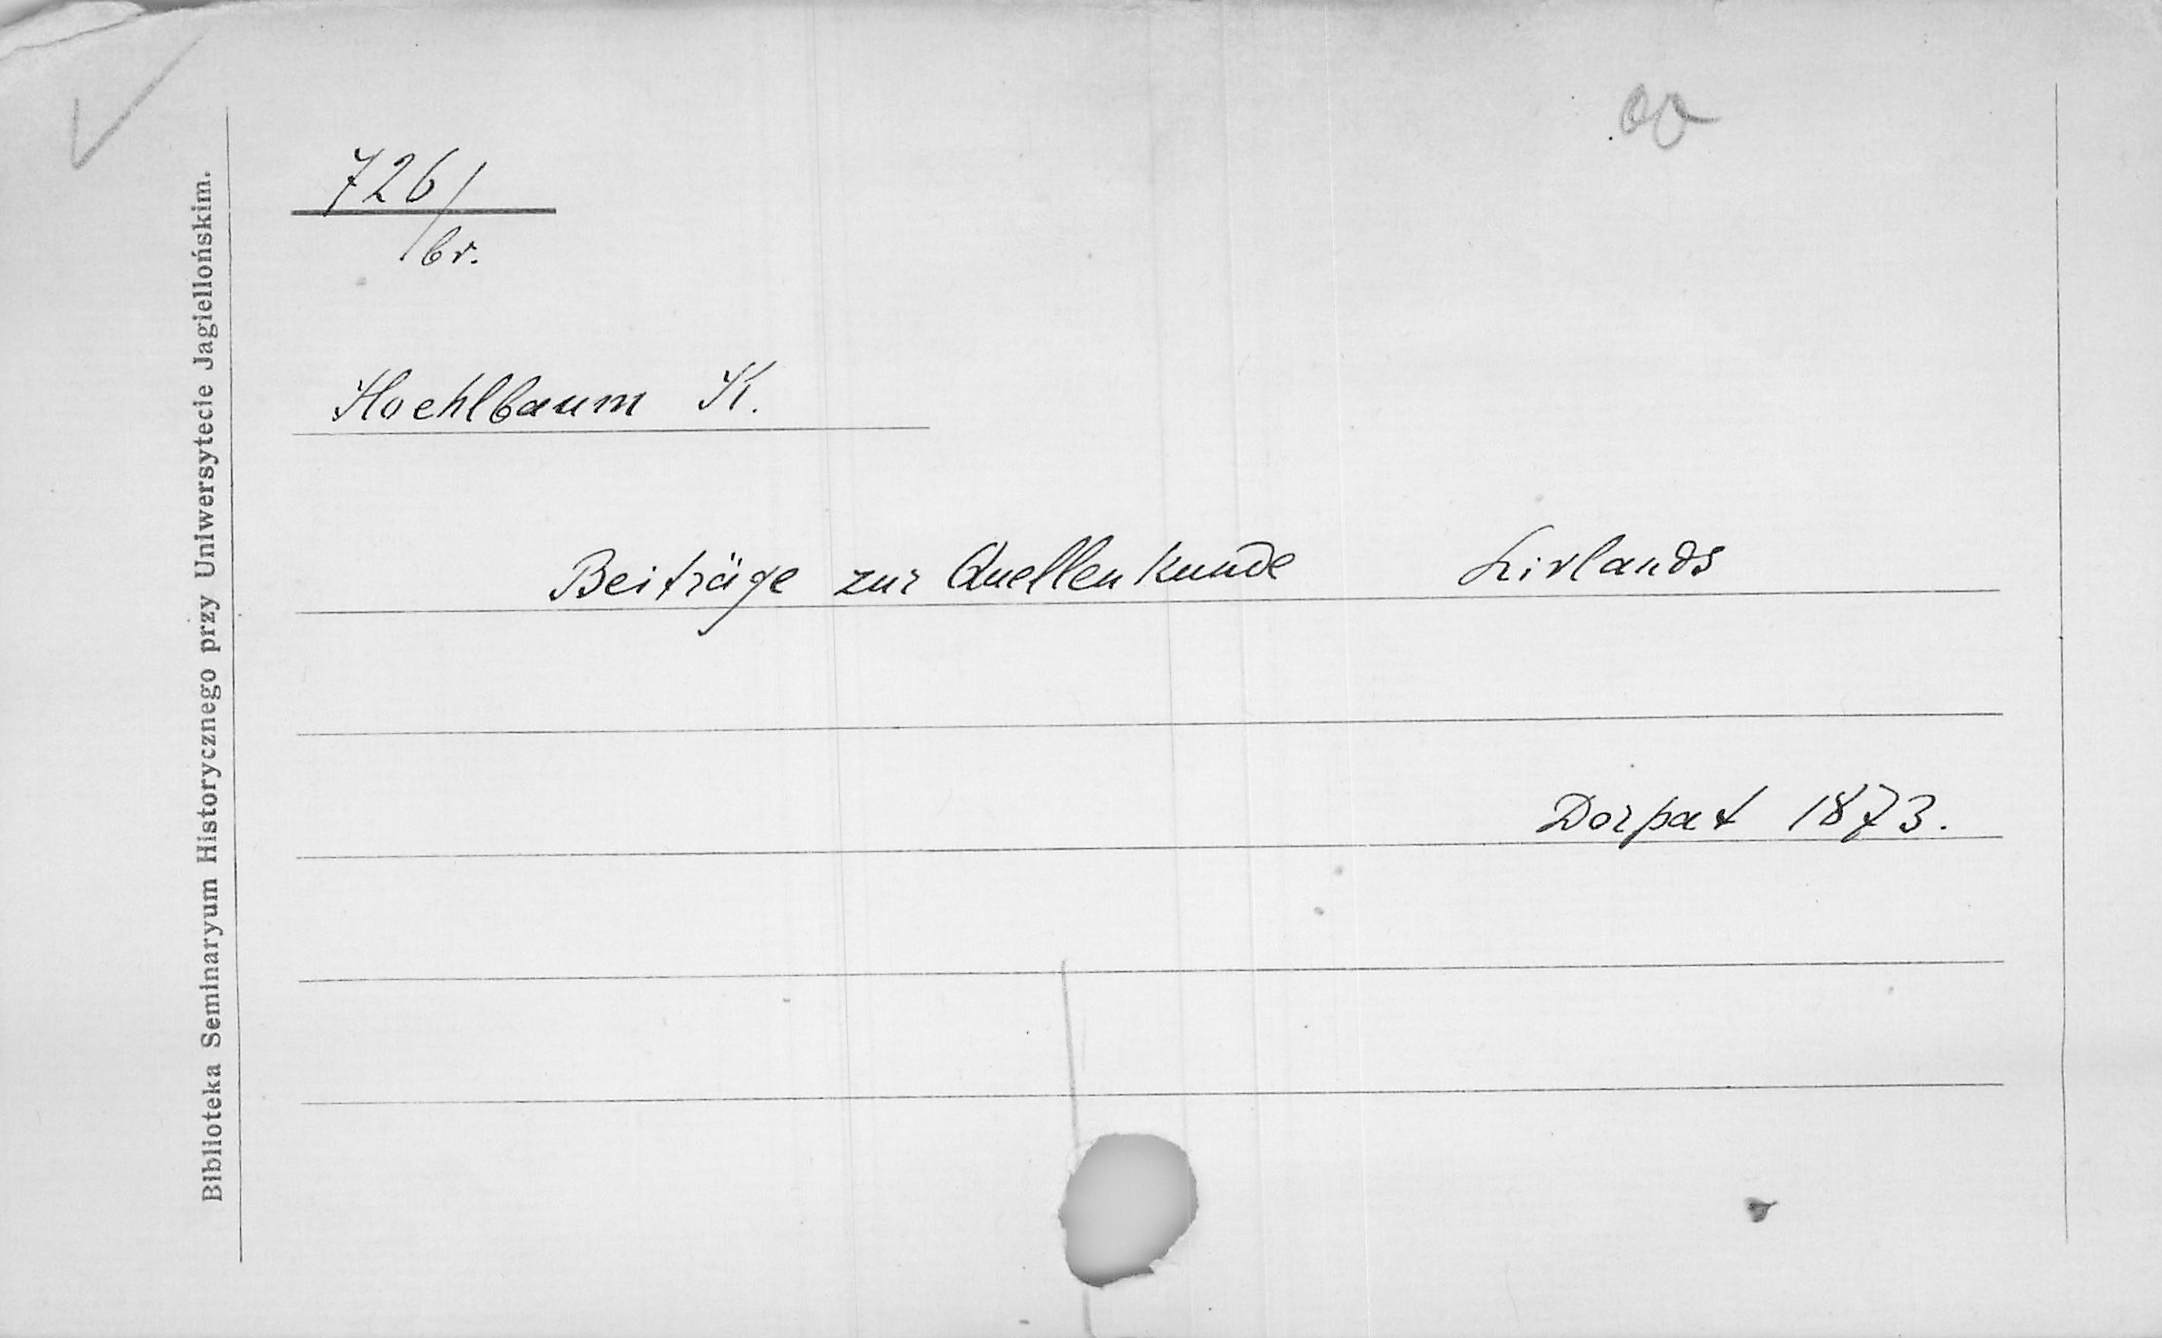 726/br.
Hoehlbaum K.
Beiträge zur Quellenkunde Livlands
Dorpat 1873.
Biblioteka Seminaryum Historycznego przy Uniwersytecie Jagiellońskim.